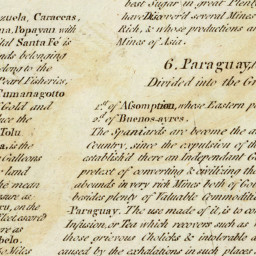 zuela, Caraccas,
na, Popayan with
ital Santa Fe is
ands belonging
elong to the
Pearl Fisheries,
Cumanagotto
Gold and
s the
Tolu
a, is the
Galleons
land
he mean
asure as
ru, on the
Fleet warn'd
re as
belo.
Miles
best Sugar in great Plenty
have Discover'd several Mines
Rich, & whose productions are
Mines of Asia.
6. Paraguay,
Divided into the G
1.st of Assomption, whose Eastern p
2.d of Buenos-ayres.
The Spaniards are become the a
Country, since the expulsion of th
establish'd there an Independant G
pretext of converting & civilizing th
abounds in very rich Mines both of Go
besides plenty of Valuable Commoditi
Paraguay. The use made of it, is to co
Infusion, or Tea which recovers such as
those grievous Cholicks & intolerable a
caused by the exhalations in such places